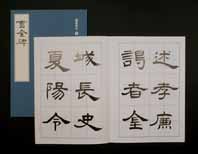 曹全碑
述孝廉
謁者金
城長史
夏陽令